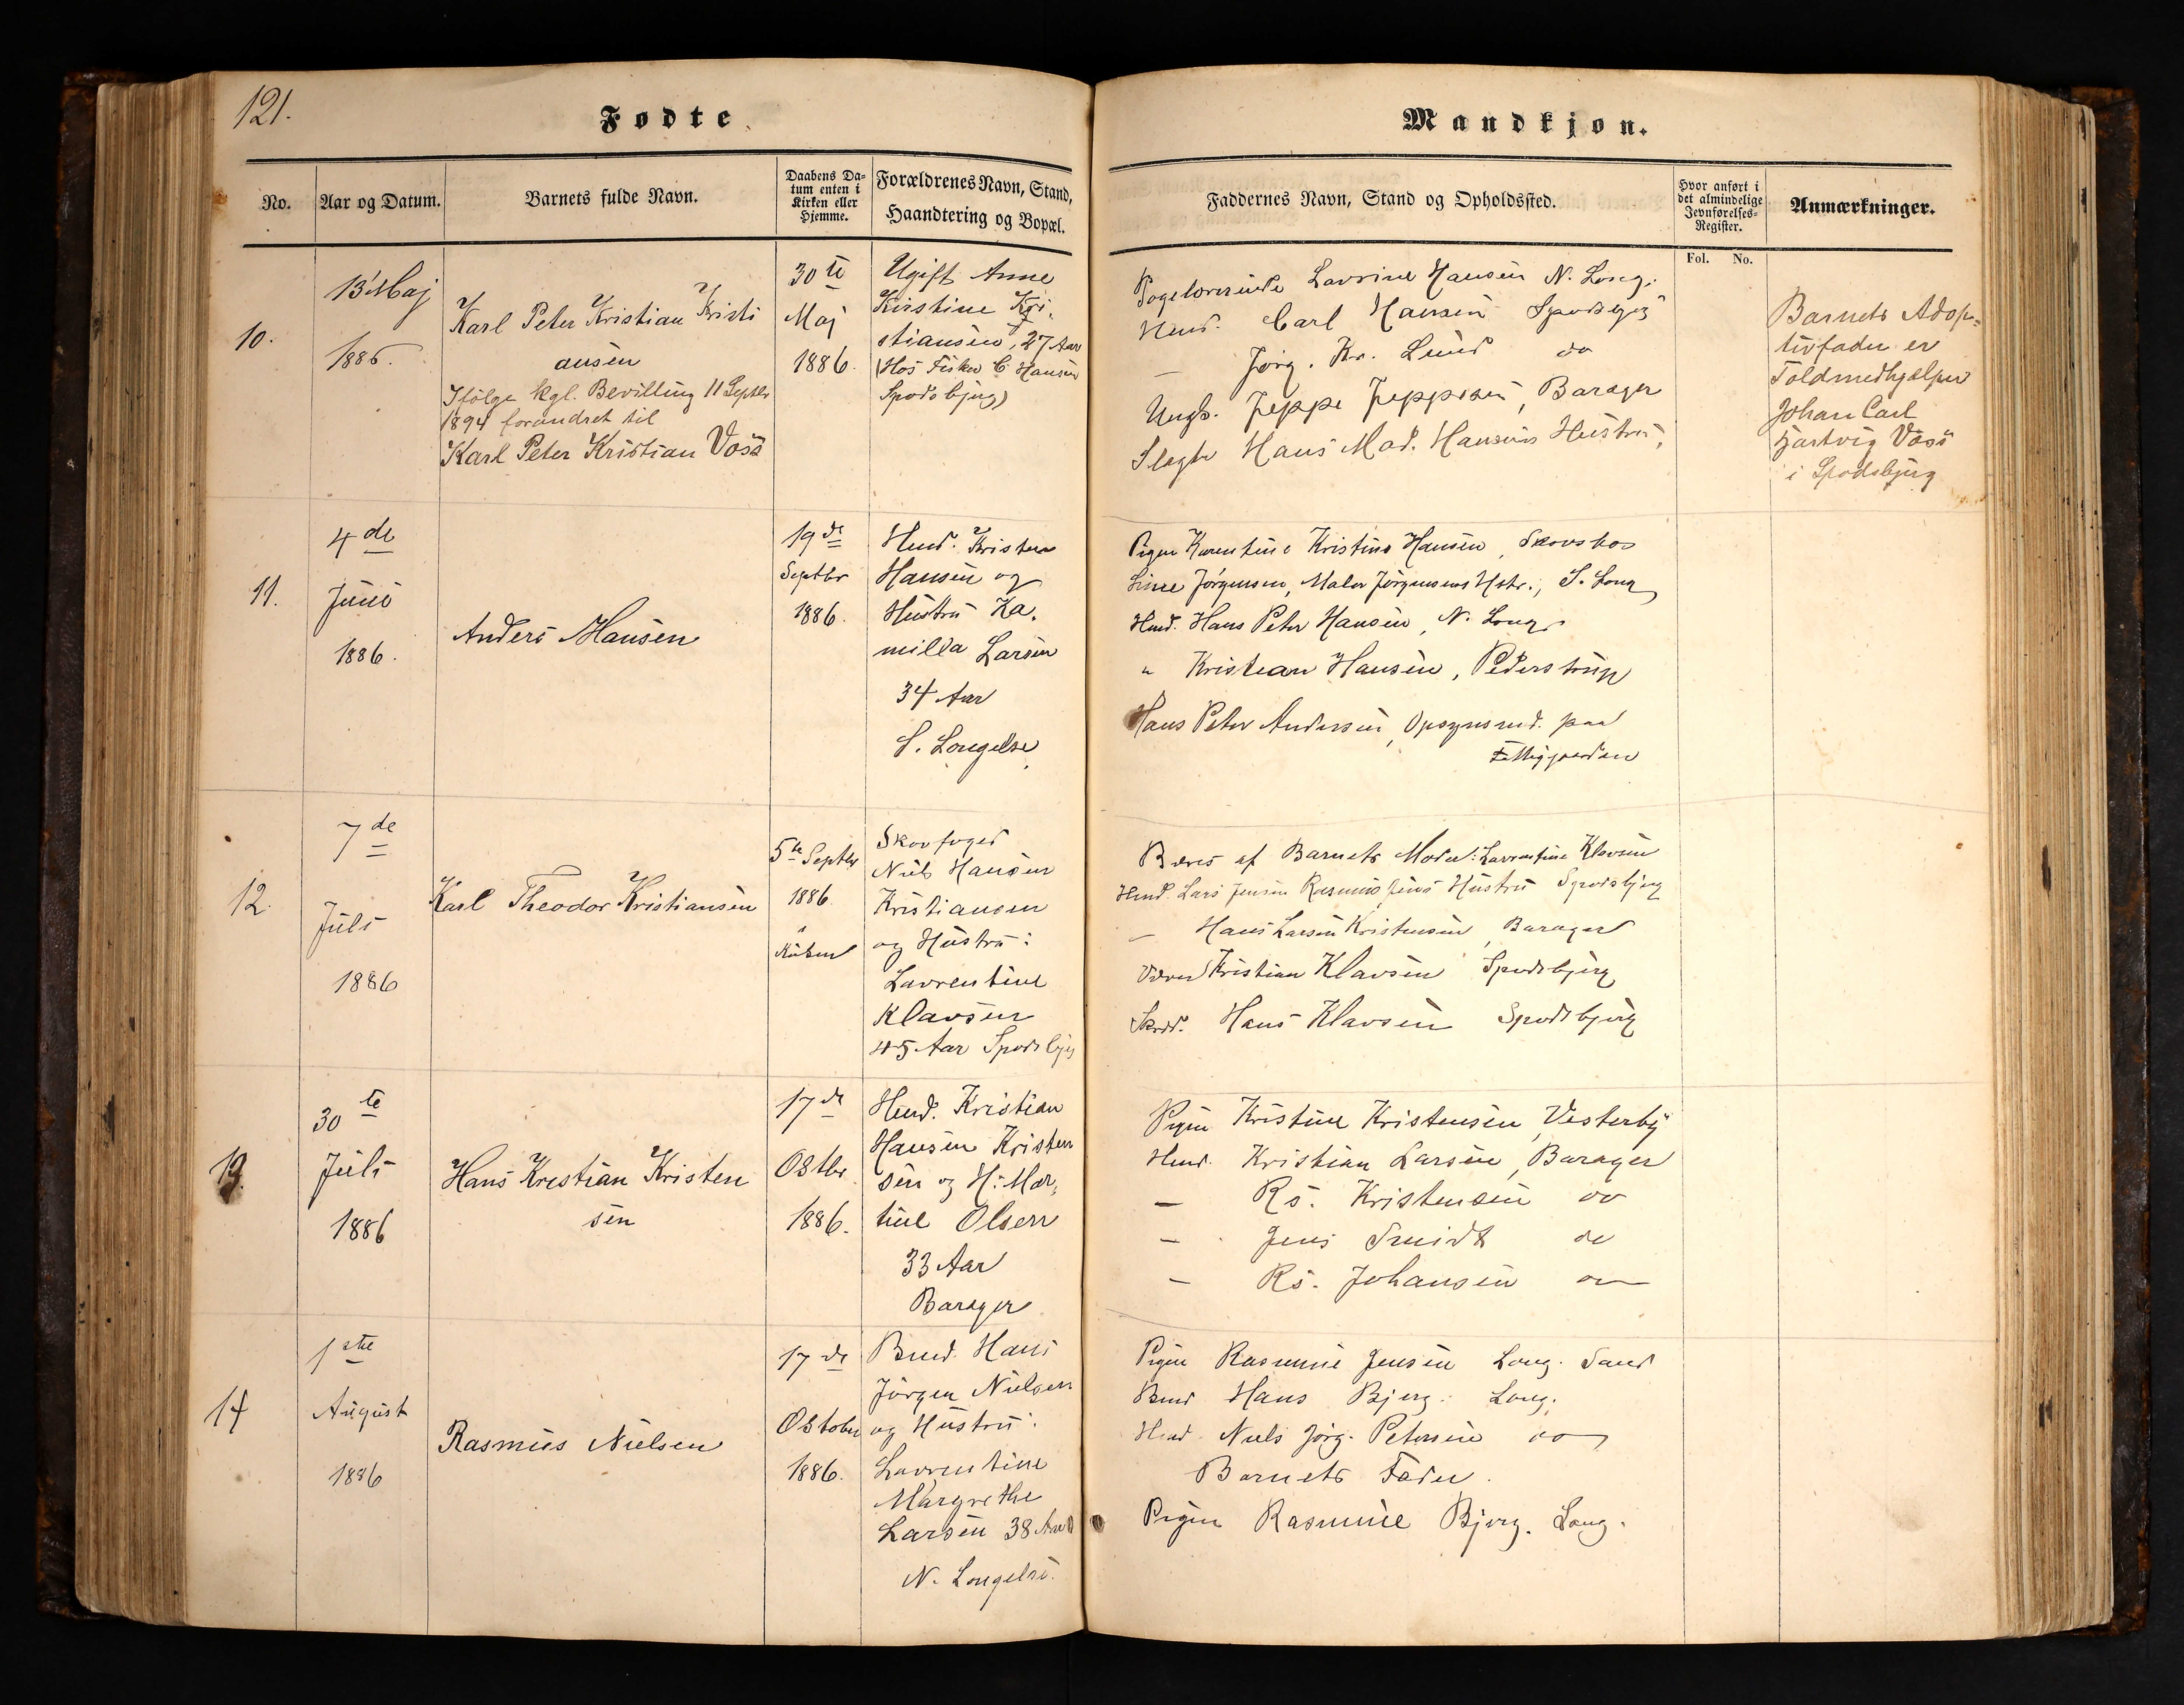 121.
Fødte
Mandkjøn.
No.
Aar og Datum.
Barnets fulde Navn.
Daabens Da-
tum enten i
Kirken eller
Hjemme.
Forældrenes Navn, Stand,
Haandtering og Bopæl.
Faddernes Navn, Stand og Opholdssted.
Hvor anført i
det almindelige
Jevnførelses-
Register.
Fol. No.
Anmærkninger.
10.
13 Maj
1886.
Karl Peter Kristian Kristi
ansen
Ifølge kgl. Bevilling 11 Septbr
1894 forandret til
Karl Peter Kristian Voss
30te
Maj
1886.
Ugift Anne
Kirstine Kri-
stiansen, 27 Aar
(Hos Fisker C. Hansen
Spodsbjerg)
Lavrine Hansen N. Long.
Hmd. Carl Hansen Spodsbjerg
— Jørg. Kr. Lund do
Ungk. Jeppe Jeppesen, Barager
Slagter Hans Mad. Hansens Hustru,
Barnets Adop-
tivfader er
Toldmedhjælper
Johan Carl
Hartvig Voss
i Spodsbjerg
11.
4de
Juni
1886.
Anders Hansen
19de
Septbr
1886.
Hmd. Kristen
Hansen og
Hustru Ka-
milla Larsen
34 Aar
S. Longelse
Pigen Karentine Kristine Hansen, Skovsbo
Sine Jørgensen, Maler Jørgensens Hstr., S. Long
Hmd. Hans Peter Hansen, N. Long.
" Kristian Hansen, Pederstrup
Hans Peter Andersen, Opsynsmd. paa
Fattiggaarden
12.
7de
Juli
1886
Karl Theodor Kristiansen
5te Septbr
1886.
Kirken
Skovfoged
Niels Hansen
Kristiansen
og Hustru:
Lavrentine
Klavsen
45 Aar Spodsbjg
Bæres af Barnets Moder: Lavrentine Klavsen
Hmd. Lars Jensen Rasmus Jens Hustru Spodsbjerg
— Hans Larsen Kristensen, Barager
Væver Kristian Klavsen Spodsbjerg
Skrdd. Hans Klavsen Spodsbjerg
13.
30te
Juli
1886
Hans Kristian Kristen
sen
17de
Oktbr
1886.
Hmd. Kristian
Hansen Kristen
sen og H: Mar-
tine Olsen
33 Aar
Barager
Pigen Kristine Kristensen, Vesterby
Hmd. Kristian Larsen, Barager
— Rs. Kristensen do
— Jens Smidt do
— Rs. Johansen do
14
1ste
August
1886
Rasmus Nielsen
17de
Oktober
1886.
Bmd. Hans
Jørgen Nielsen
og Hustru:
Lavrentine
Margrethe
Larsen 38 Aar
N. Longelse.
Pigen Rasmine Jensen Long. Sand
Bmd Hans Bjerg. Long.
Hmd. Niels Jørg. Petersen do
Barnets Fader.
Pigen Rasmine Bjerg. Long.